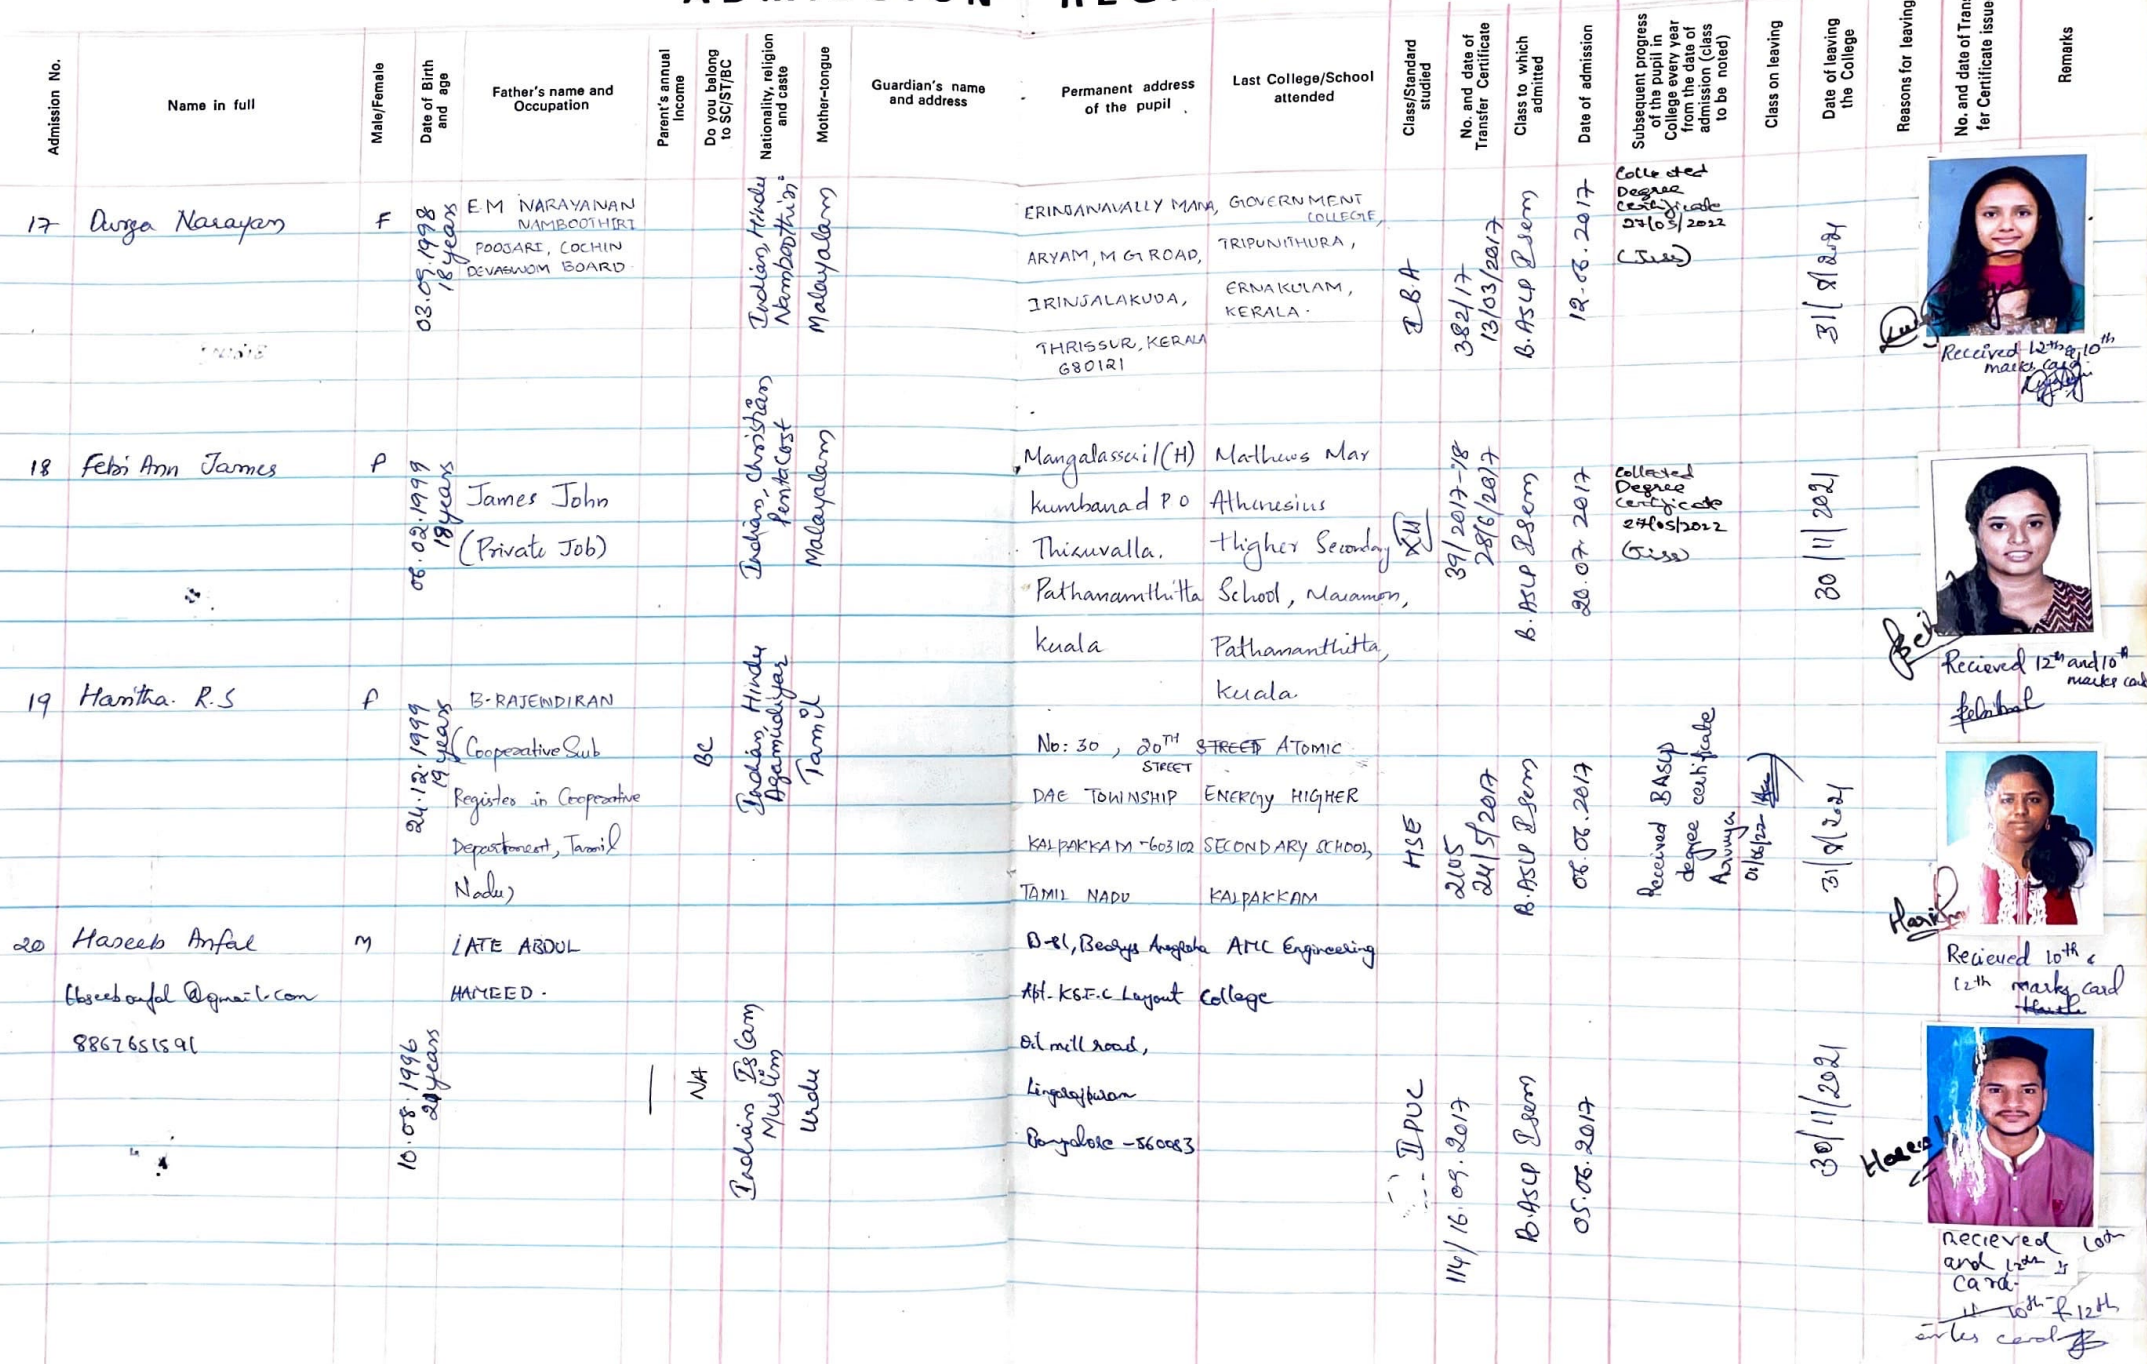 Admission No.
Name in full
Male/Female
Date of Birth
and age
Father's name and
Occupation
Parent's annual
Income
Do you belong
to SC/ST/BC
Nationality, religion
and caste
Mother-tongue
Guardian's name
and address
Permanent address
of the pupil
Last College/School
attended
Class/Standard
studied
No. and date of
Transfer Certificate
Class to which
admitted
Date of admission
Subsequent progress
of the pupil in
College every year
from the date of
admission (class
to be noted)
Class on leaving
Date of leaving
the College
Reasons for leaving
No. and date of Trans
fer Certificate issue
Remarks
17
Durga Narayan
F
03.09.1998
18 years
E.M NARAYANAN
NAMBOOTHIRI
POOJARI, COCHIN
DEVASWOM BOARD
Indian, Hindu
Namboothiri
Malayalam
ERINJANAVALLY MANA,
ARYAM, M G ROAD,
IRINJALAKUDA,
THRISSUR, KERALA
680121
GOVERNMENT
COLLEGE,
TRIPUNITHURA,
ERNAKULAM,
KERALA.
I B.A
382/17
13/03/2017
B.ASLP I sem
12.06.2017
Collected
Degree
Certificate
27/05/2022
31/8/2021
Received 12th & 10th
marks card
18
Febi Ann James
F
06.02.1999
18 years
James John
(Private Job)
Indian, Christian
Pentacost
Malayalam
Mangalasseril (H)
Kumbanad P O
Thiruvalla.
Pathanamthitta
Kerala
Mathews Mar
Athenesius
Higher Secondary
School, Maramon,
Pathanamthitta,
Kerala.
XII
39/2017-18
28/6/2017
B.ASLP I sem
20.07.2017
Collected
Degree
Certificate
27/05/2022
30/11/2021
Recieved 12th and 10th
marks card
19
Haritha. R.S
F
24.12.1999
19 years
B-RAJENDIRAN
(Cooperative Sub
Register in Cooperative
Department, Tamil
Nadu)
BC
Indian, Hindu
Agamudiyar
Tamil
No: 30, 20TH STREET
STREET
DAE TOWNSHIP
KALPAKKAM -603102
TAMIL NADU
ATOMIC
ENERGY HIGHER
SECONDARY SCHOOL,
KALPAKKAM
HSE
2105
24/5/2017
B.ASLP I sem
06.06.2017
Received BASLP
degree certificate
01/06/22
31/8/2021
Recieved 10th &
12th marks card
20
Haseeb Anfal
8867651591
M
10.08.1996
20 years
LATE ABDUL
HAMEED.
NA
Indian Islam
Muslim
Urdu
Apt. KSFC Layout
Oil mill road,
Lingarajpuram
Bangalore -560083
AMC Engineering
College
II PUC
114/16.09.2017
B.ASLP I sem
05.06.2017
30/11/2021
Haseeb
Recieved 10th
and 12th
Card
10th & 12th